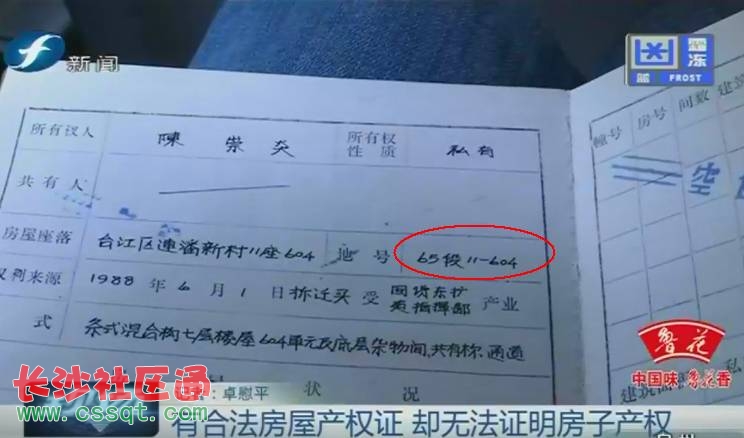 新闻
蓝
冻
FROST
所有权人 陳崇炎 所有权性质 私有
共有人
房屋座落 台江区連潘新村11座604 地号 65段11-604
权利来源 1988年6月1日拆迁买受 国货东扩 指挥部 产业
式 条式混合构七层楼屋604单元及底层杂物间,共有梯、通道
状 况
幢号 房号 间数
空
鲁花
中国味 鲁花香
长沙社区通
www.cssqt.com
：卓慰平
有合法房屋产权证 却无法证明房子产权